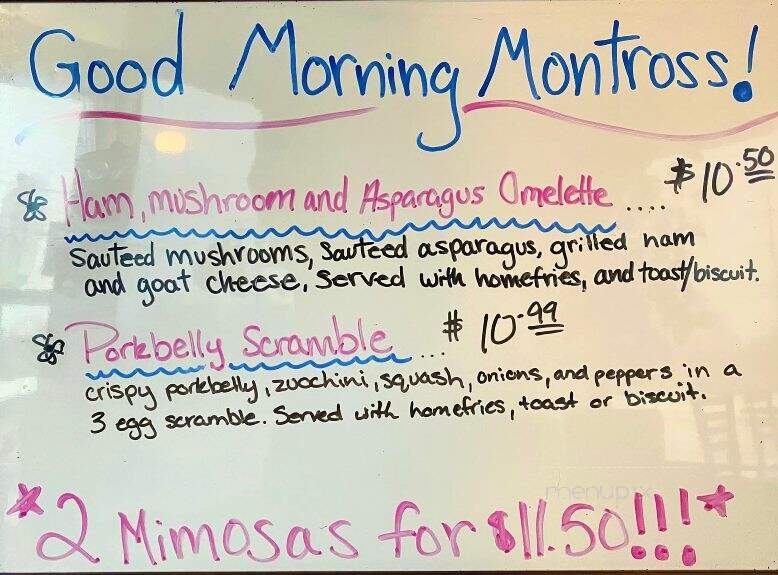 Good Morning Montross!
Ham, mushroom and Asparagus Omelette .... $10.50
Sauteed mushrooms, Sauteed asparagus, grilled ham
and goat cheese, Served with homefries, and toast/biscuit.
Porkbelly Scramble ... $10.99
crispy porkbelly, zucchini, squash, onions, and peppers in a
3 egg scramble. Served with homefries, toast or biscuit.
menupix
*2 Mimosas for $11.50!!!*